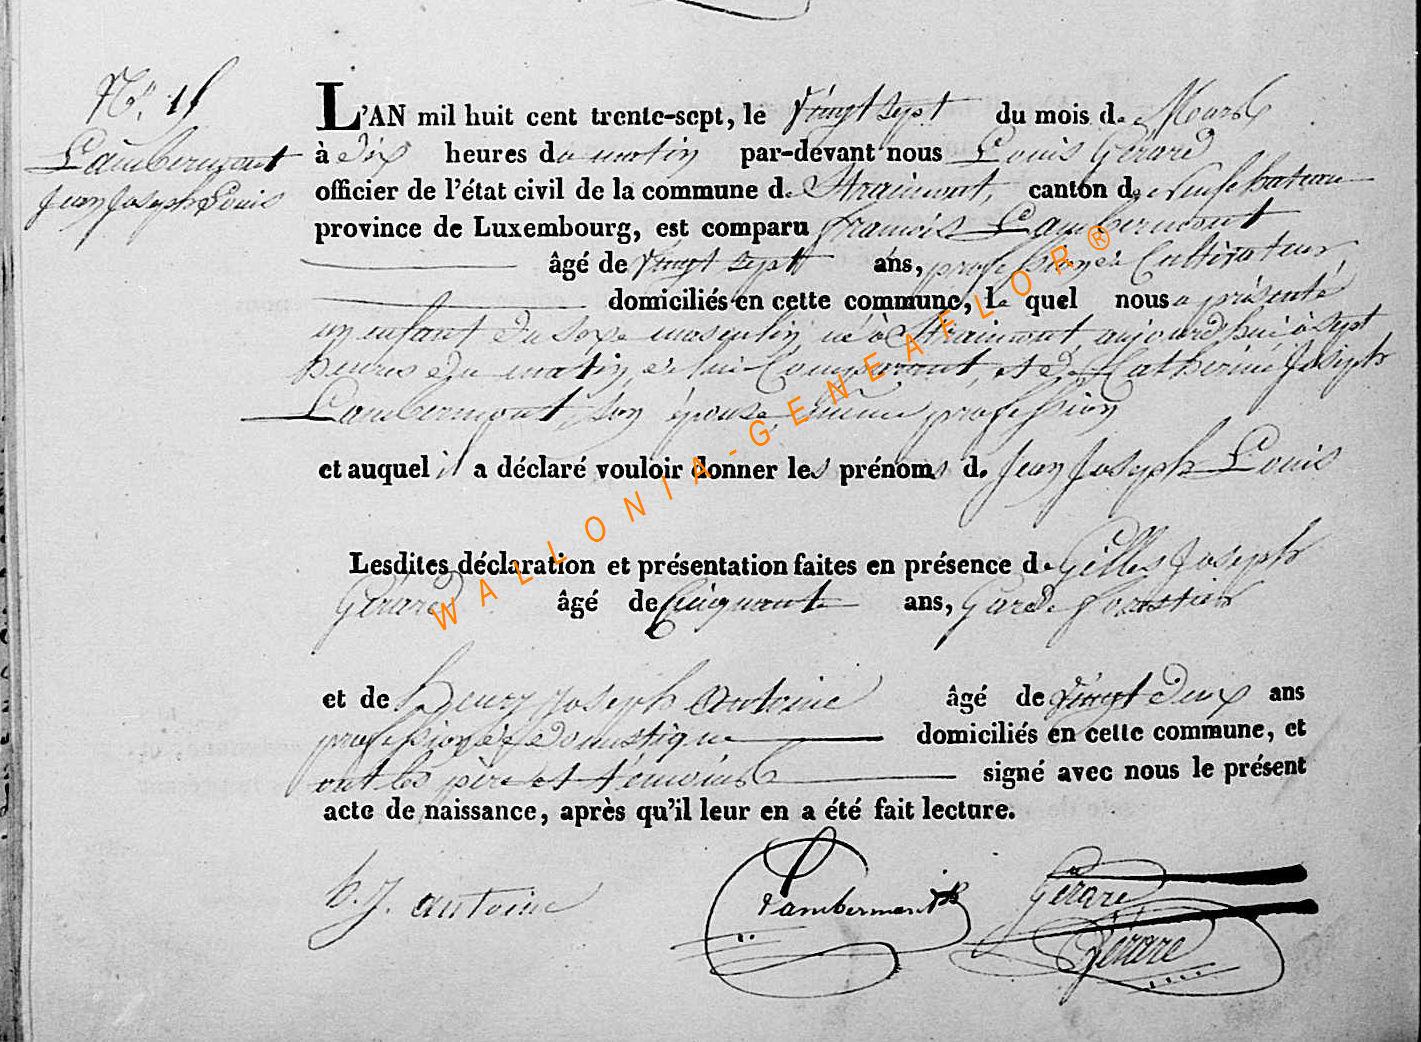 N° 15
Lambermont
Jean Joseph Louis
L'AN mil huit cent trente-sept, le vingt sept du mois de Mars
à dix heures du matin par-devant nous Louis Gérard
officier de l'état civil de la commune de Straimont, canton de Neufchateau
province de Luxembourg, est comparu francois Lambermont
âgé de vingt sept ans, profession de Cultivateur,
domiciliés en cette commune, le quel nous a présenté
un enfant du sexe masculin, né à Straimont, aujourd'hui, à sept
heures du matin, de lui Comparant, et de Catherine Joseph
Lambermont, son épouse, même profession
et auquel il a déclaré vouloir donner les prénoms de Jean Joseph Louis
Lesdites déclaration et présentation faites en présence de Gilles Joseph
Gérard âgé de Cinquante ans, Garde forestier
et de henry joseph antoine âgé de vingt deux ans
profession de domestique domiciliés en cette commune, et
ont les père et témoins signé avec nous le présent
acte de naissance, après qu'il leur en a été fait lecture.
h. J. antoine Lambermont Gérard
Gérard
WALLONIA-GENEAFLOR®